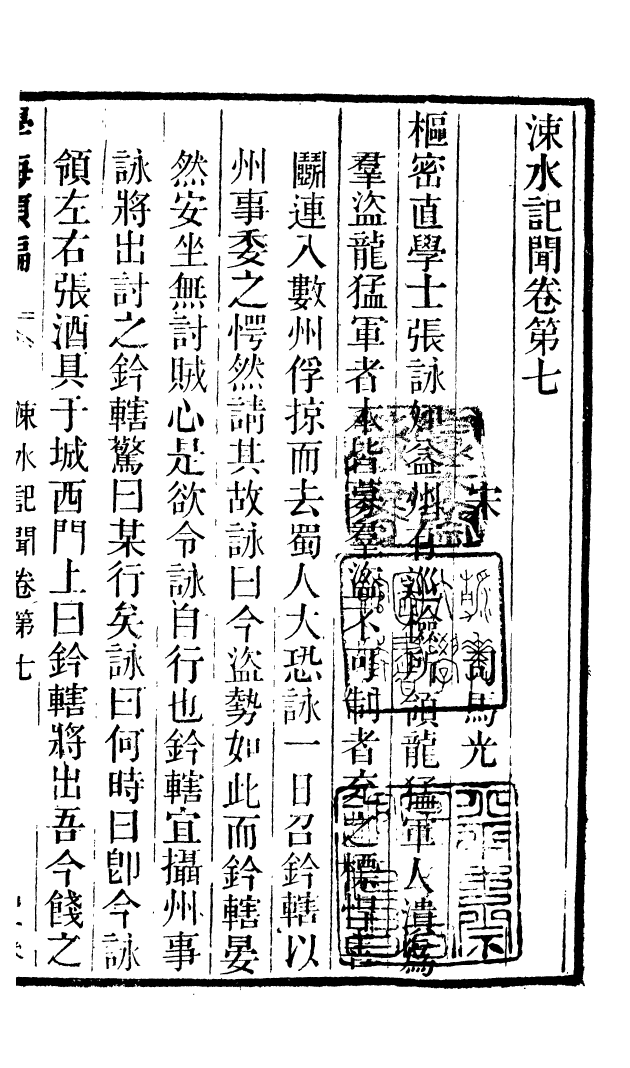 涑水記聞卷第七
宋 司馬光
樞密直學士張詠知益州有巡檢所領龍猛軍人潰為
羣盜龍猛軍者本皆募羣盜不可制者充之慓悍善
鬭連入數州俘掠而去蜀人大恐詠一日召鈐轄以
州事委之愕然請其故詠曰今盜勢如此而鈐轄晏
然安坐無討賊心是欲令詠自行也鈐轄宜攝州事
詠將出討之鈐轄驚曰某行矣詠曰何時曰卽今詠
領左右張酒具于城西門上曰鈐轄將出吾今餞之
學海類編
涑水記聞卷第七